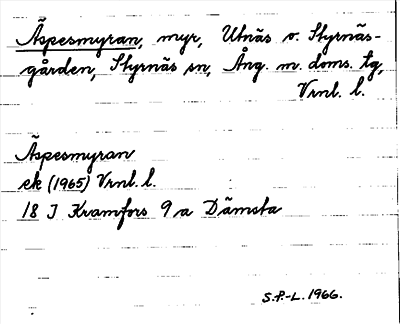 Äspesmyran, myr, Utnäs o. Styrnäs-
gården, Styrnäs sn, Ång. m. doms. tg,
Vrnl. l.
Äspesmyran
ek (1965) Vrnl. l.
18 J Kramfors 9 a Dämsta
S.P.-L. 1966.